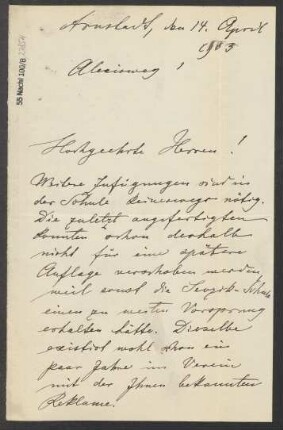 Arnstadt, den 14. April
1903
Alexisweg 1
55 Nachl 100/B
Hochgeehrte Herren!
Weitere Zufügungen sind in
der Schule keineswegs nötig.
Die zuletzt angefertigten
konnten schon deshalb
nicht für eine spätere
Auflage verschoben werden,
weil sonst die Sevčik-Schule
einen zu weiten Vorsprung
erhalten hätte. Dieselbe
existirt wohl schon ein
paar Jahre im Verein
mit der Ihnen bekannten
Reklame.